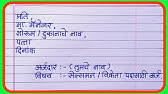 प्रति,
मा. मॅनेजर,
शोरूम / दुकानाचे नाव,
पत्ता
दिनांक
अर्जदार :- (तुमचे नाव)
विषय :- सेल्समन / विक्रेता पदासाठी अर्ज.